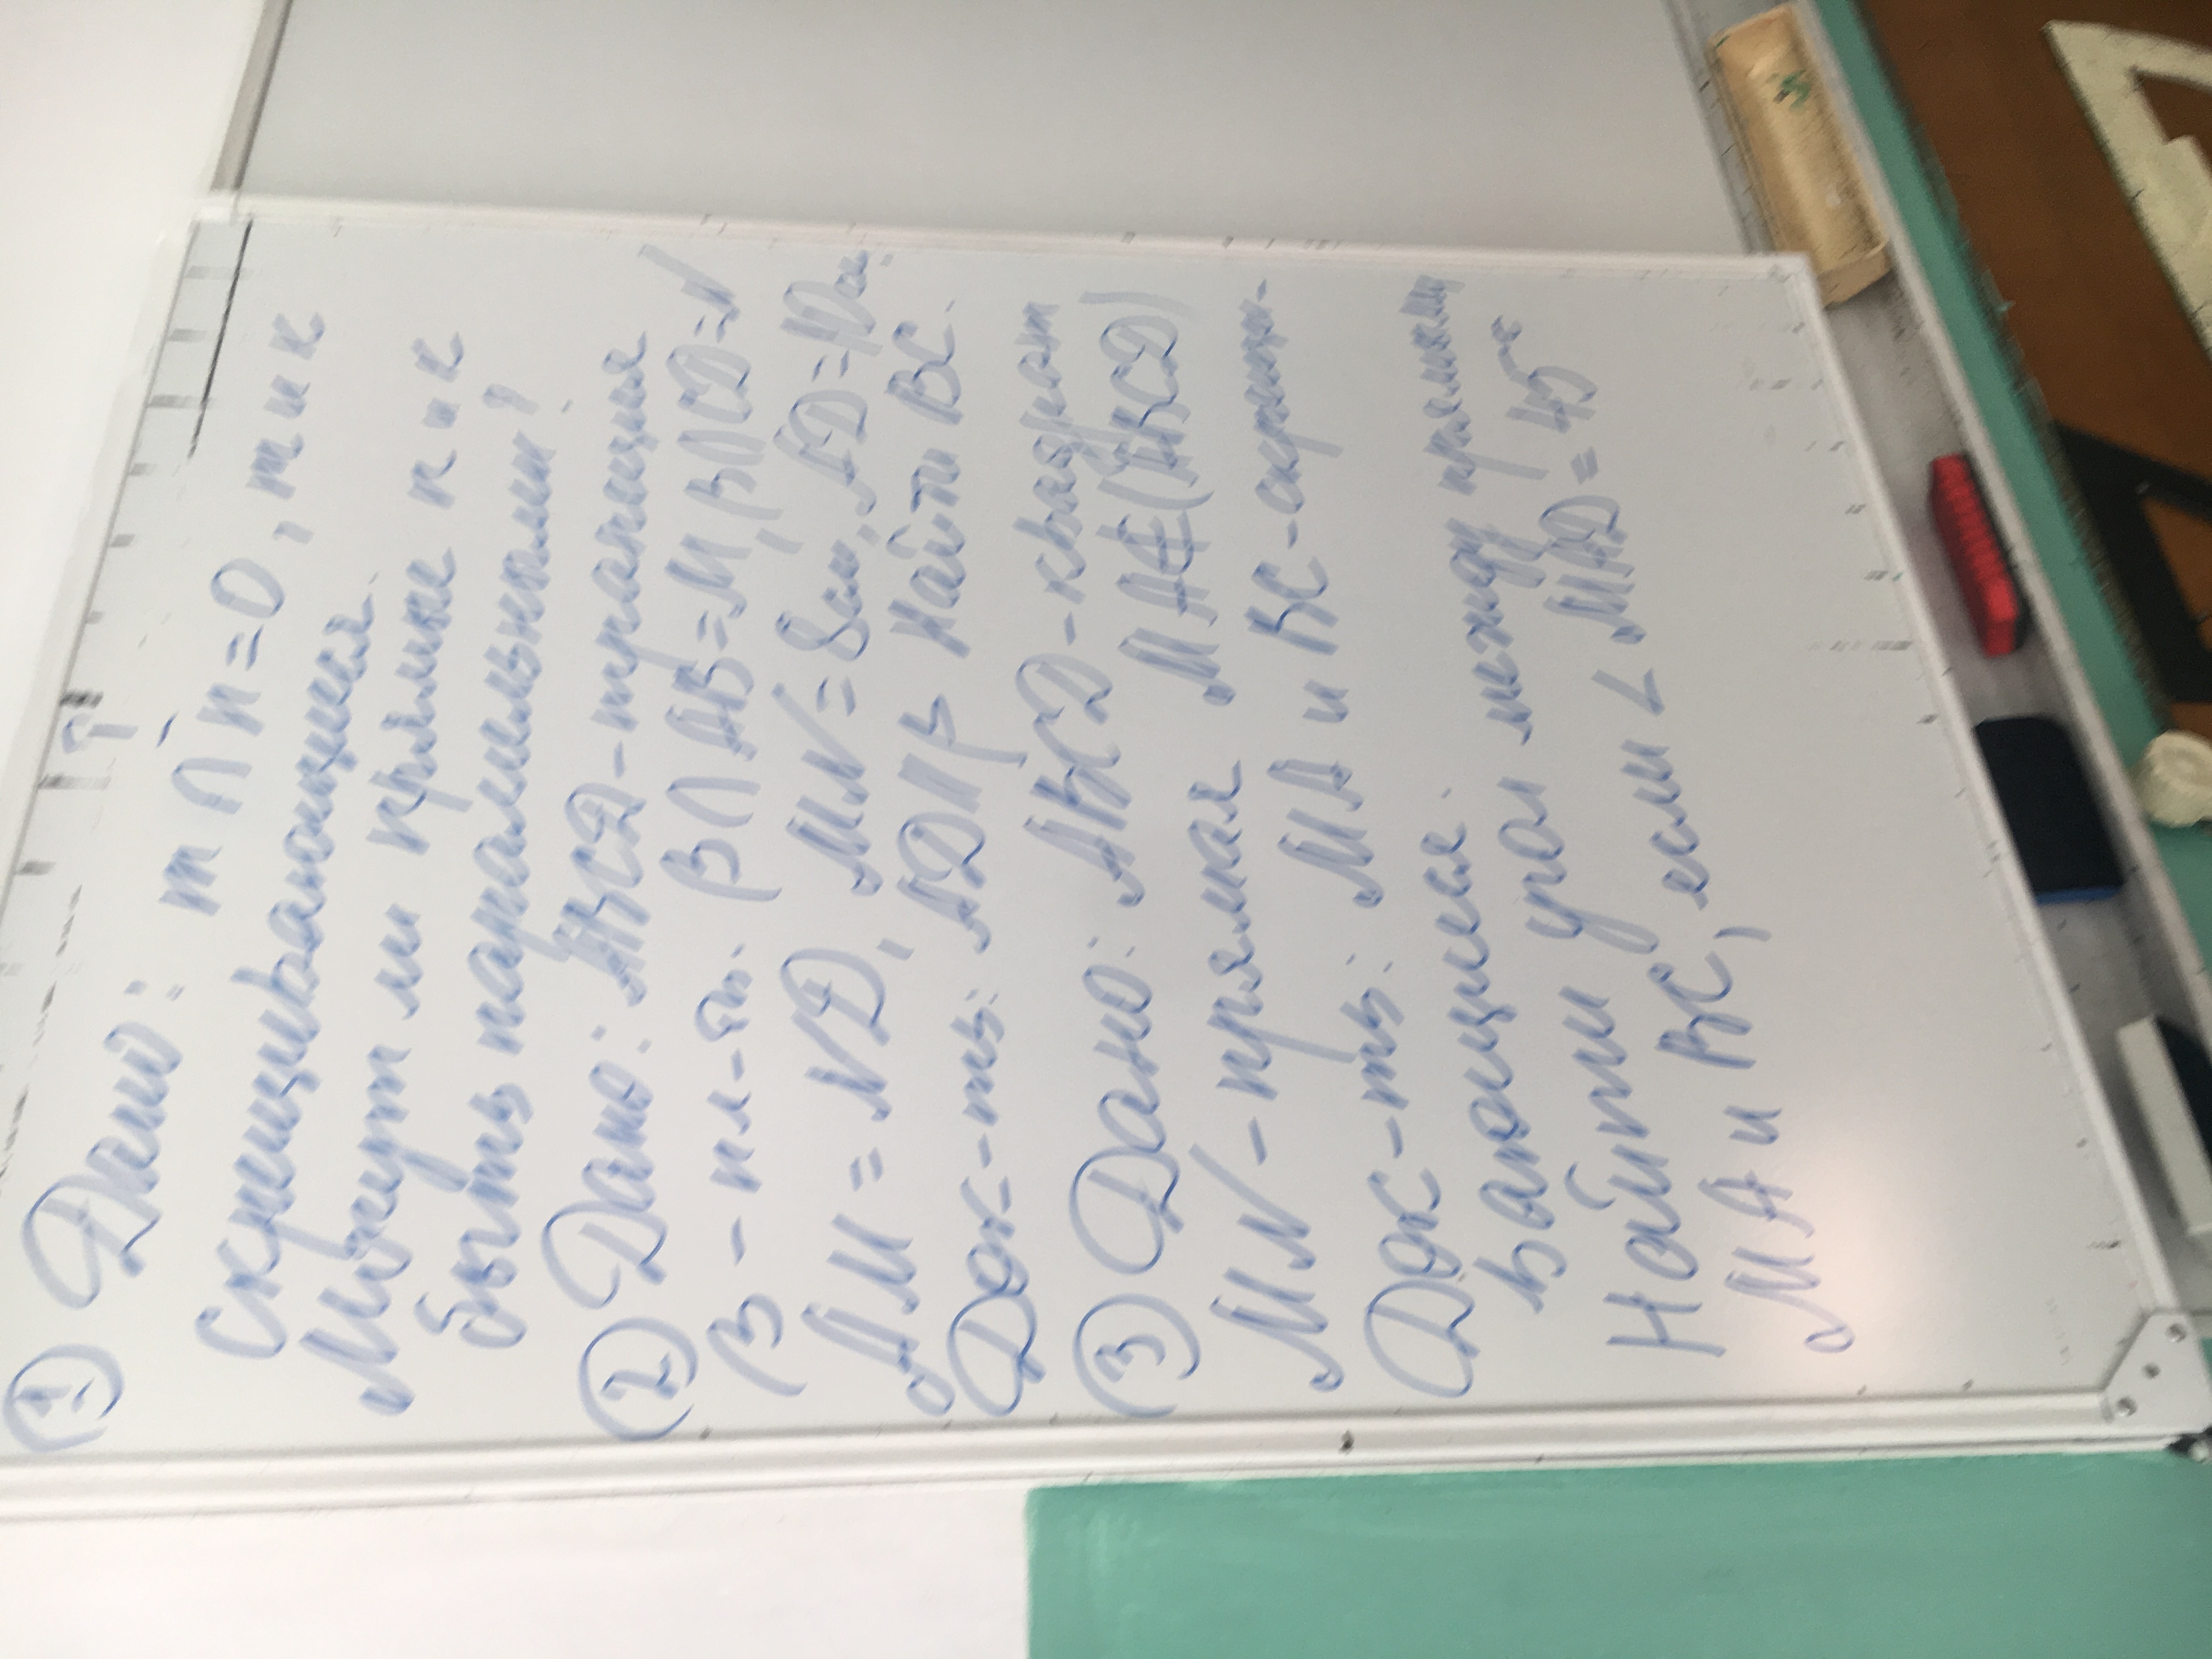 ① Дано: m ∩ n = O, m и k
скрещивающиеся.
Могут ли прямые n и k
быть параллельными?
② Дано: ABCD - трапеция
β - пл-ть. β ∩ AB = M, β ∩ CD = N
AM = ND, MN = 8см, AD = 10см.
Док-ть: AD || β Найти BC.
③ Дано: ABCD - квадрат
MN - прямая MA ∉ (ABCD)
Док-ть: MA и BC - скрещи-
вающиеся.
Найти угол между прямыми
MA и BC, если ∠MAD = 45°